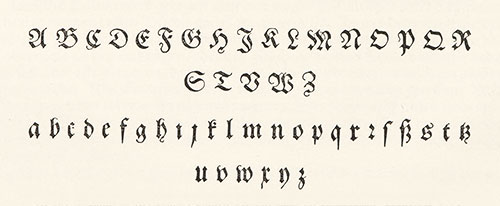 A B C D E F G H J K L M N O P Q R
S T V W Z
a b c d e f g h ı ȷ k l m n o p q r ꝛ ſ ß s t tz
u v w x y z